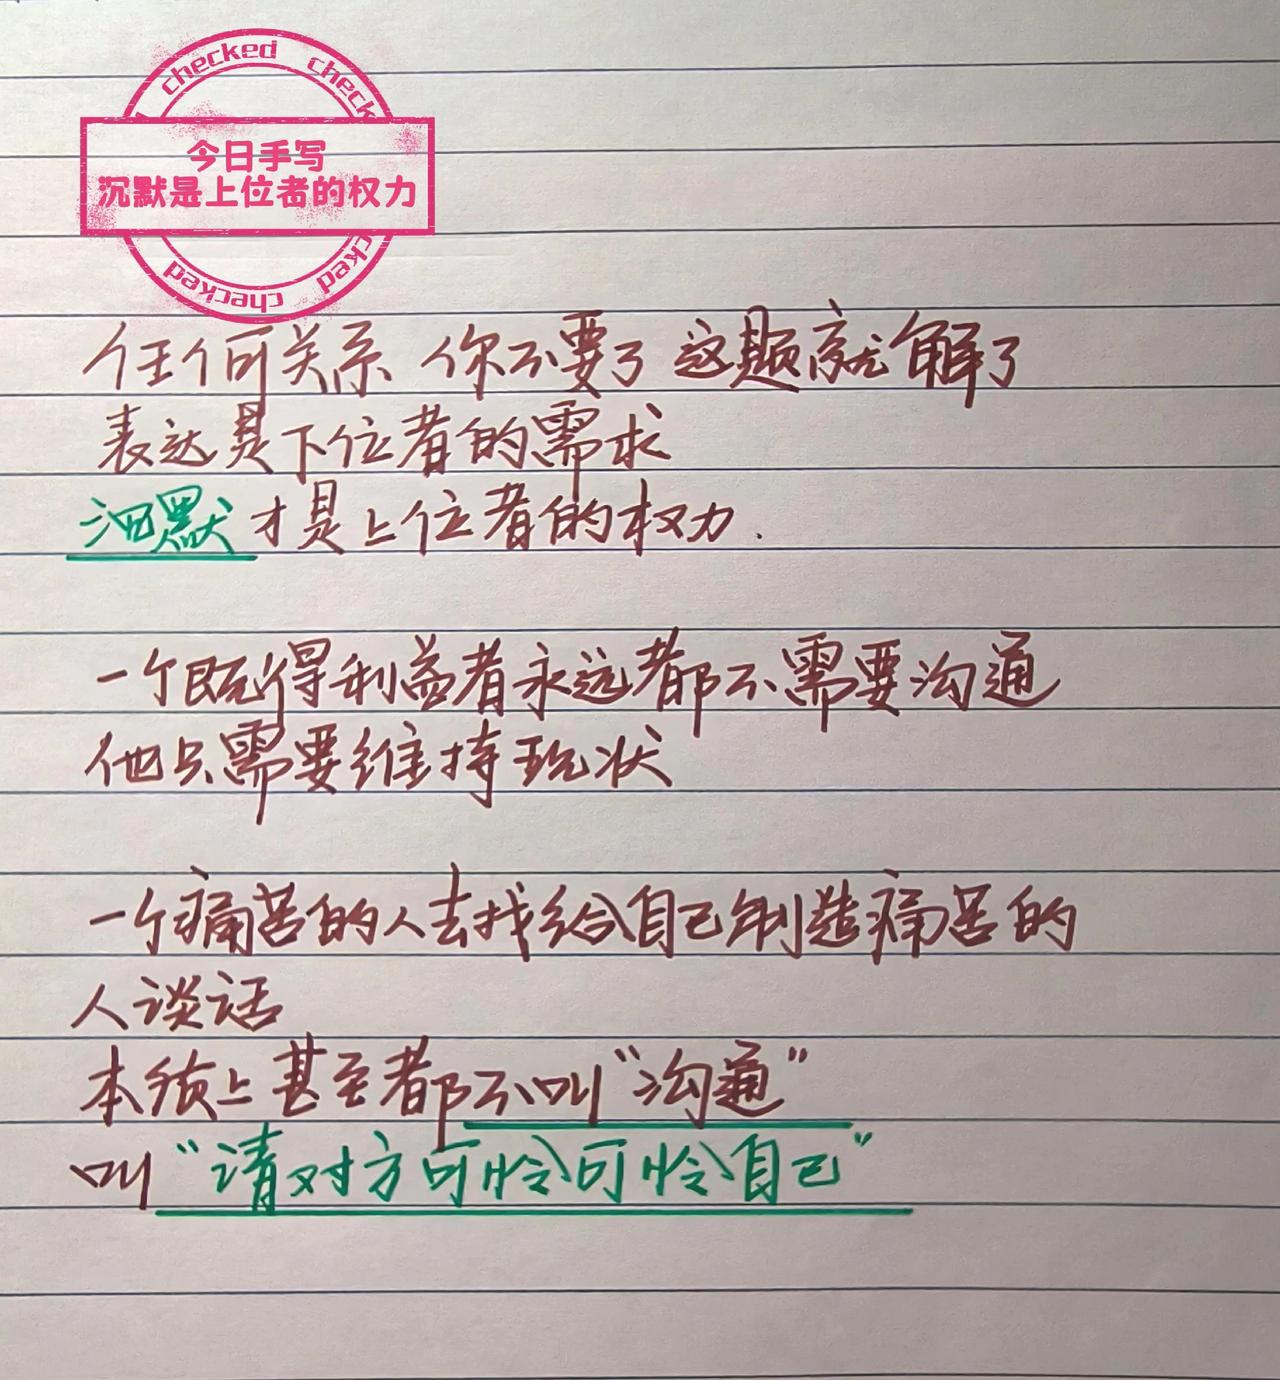 checked check
今日手写
沉默是上位者的权力
cked checked checked
任何关系 你不要了 这题就解了
表达是下位者的需求
沉默才是上位者的权力.
一个既得利益者永远都不需要沟通
他只需要维持现状
一个痛苦的人去找给自己制造痛苦的
人谈话
本质上甚至都不叫“沟通”
叫“请对方可怜可怜自己”